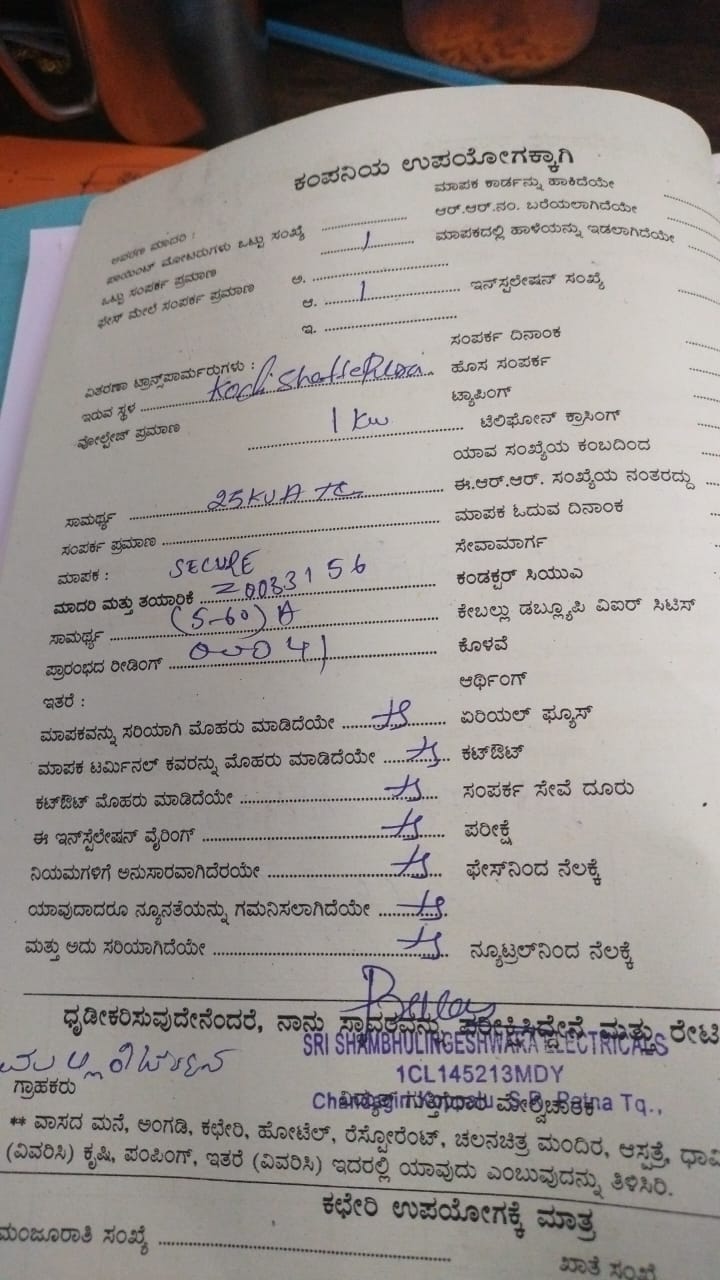 ಕಂಪನಿಯ ಉಪಯೋಗಕ್ಕಾಗಿ
ಮಾಪಕ ಕಾರ್ಡನ್ನು ಹಾಕಿದೆಯೇ
ಆವರಣ ಮಾದರಿ : ಆರ್.ಆರ್.ನಂ. ಬರೆಯಲಾಗಿದೆಯೇ
ಪಾಯಿಂಟ್ ಮೋಟರುಗಳು ಒಟ್ಟು ಸಂಖ್ಯೆ 1 ಮಾಪಕದಲ್ಲಿ ಹಾಳೆಯನ್ನು ಇಡಲಾಗಿದೆಯೇ
ಒಟ್ಟು ಸಂಪರ್ಕ ಪ್ರಮಾಣ ಅ.
ಫೇಸ್ ಮೇಲೆ ಸಂಪರ್ಕ ಪ್ರಮಾಣ ಆ. 1 ಇನ್‌ಸ್ಟಲೇಷನ್ ಸಂಖ್ಯೆ
ಇ.
ಸಂಪರ್ಕ ದಿನಾಂಕ
ವಿತರಣಾ ಟ್ರಾನ್ಸ್‌ಪಾರ್ಮರುಗಳು : ಹೊಸ ಸಂಪರ್ಕ
ಇರುವ ಸ್ಥಳ ಟ್ಯಾಪಿಂಗ್
ವೋಲ್ಟೇಜ್ ಪ್ರಮಾಣ 1 Kw ಟೆಲಿಫೋನ್ ಕ್ರಾಸಿಂಗ್
ಯಾವ ಸಂಖ್ಯೆಯ ಕಂಬದಿಂದ
ಸಾಮರ್ಥ್ಯ 25KVA TC ಈ.ಆರ್.ಆರ್. ಸಂಖ್ಯೆಯ ನಂತರದ್ದು
ಸಂಪರ್ಕ ಪ್ರಮಾಣ ಮಾಪಕ ಓದುವ ದಿನಾಂಕ
ಮಾಪಕ : SECURE ಸೇವಾಮಾರ್ಗ
ಮಾದರಿ ಮತ್ತು ತಯಾರಿಕೆ 20083156 ಕಂಡಕ್ಟರ್ ಸಿಯುಎ
ಸಾಮರ್ಥ್ಯ (5-60) A ಕೇಬಲ್ಲು ಡಬ್ಲ್ಯೂಪಿ ವಿಐಆರ್ ಸಿಟಿಸ್
ಪ್ರಾರಂಭದ ರೀಡಿಂಗ್ 00041 ಕೊಳವೆ
ಇತರೆ : ಆರ್ಥಿಂಗ್
ಮಾಪಕವನ್ನು ಸರಿಯಾಗಿ ಮೊಹರು ಮಾಡಿದೆಯೇ ಏರಿಯಲ್ ಫ್ಯೂಸ್
ಮಾಪಕ ಟರ್ಮಿನಲ್ ಕವರನ್ನು ಮೊಹರು ಮಾಡಿದೆಯೇ ಕಟ್‌ಔಟ್
ಕಟ್‌ಔಟ್ ಮೊಹರು ಮಾಡಿದೆಯೇ ಸಂಪರ್ಕ ಸೇವೆ ದೂರು
ಈ ಇನ್‌ಸ್ಟೆಲೇಷನ್ ವೈರಿಂಗ್ ಪರೀಕ್ಷೆ
ನಿಯಮಗಳಿಗೆ ಅನುಸಾರವಾಗಿದೆರಯೇ ಫೇಸ್‌ನಿಂದ ನೆಲಕ್ಕೆ
ಯಾವುದಾದರೂ ನ್ಯೂನತೆಯನ್ನು ಗಮನಿಸಲಾಗಿದೆಯೇ
ಮತ್ತು ಅದು ಸರಿಯಾಗಿದೆಯೇ ನ್ಯೂಟ್ರಲ್‌ನಿಂದ ನೆಲಕ್ಕೆ
ಧೃಡೀಕರಿಸುವುದೇನೆಂದರೆ, ನಾನು ಸ್ಥಾವರವನ್ನು ಪರೀಕ್ಷಿಸಿದ್ದೇನೆ ಮತ್ತು ರೇಟಿ
SRI SHAMBHULINGESHWARA ELECTRICALS
1CL145213MDY
ಗ್ರಾಹಕರು ವಿದ್ಯುತ್ ಗುತ್ತಿಗೆದಾರ ಮೇಲ್ವಿಚಾರಕ
S.R. Patna Tq.,
** ವಾಸದ ಮನೆ, ಅಂಗಡಿ, ಕಛೇರಿ, ಹೋಟೆಲ್, ರೆಸ್ಟೋರೆಂಟ್, ಚಲನಚಿತ್ರ ಮಂದಿರ, ಆಸ್ಪತ್ರೆ, ಧಾರ್ಮಿ
(ವಿವರಿಸಿ) ಕೃಷಿ, ಪಂಪಿಂಗ್, ಇತರೆ (ವಿವರಿಸಿ) ಇದರಲ್ಲಿ ಯಾವುದು ಎಂಬುವುದನ್ನು ತಿಳಿಸಿರಿ.
ಕಛೇರಿ ಉಪಯೋಗಕ್ಕೆ ಮಾತ್ರ
ಮಂಜೂರಾತಿ ಸಂಖ್ಯೆ ಖಾತೆ ಸಂಖ್ಯೆ